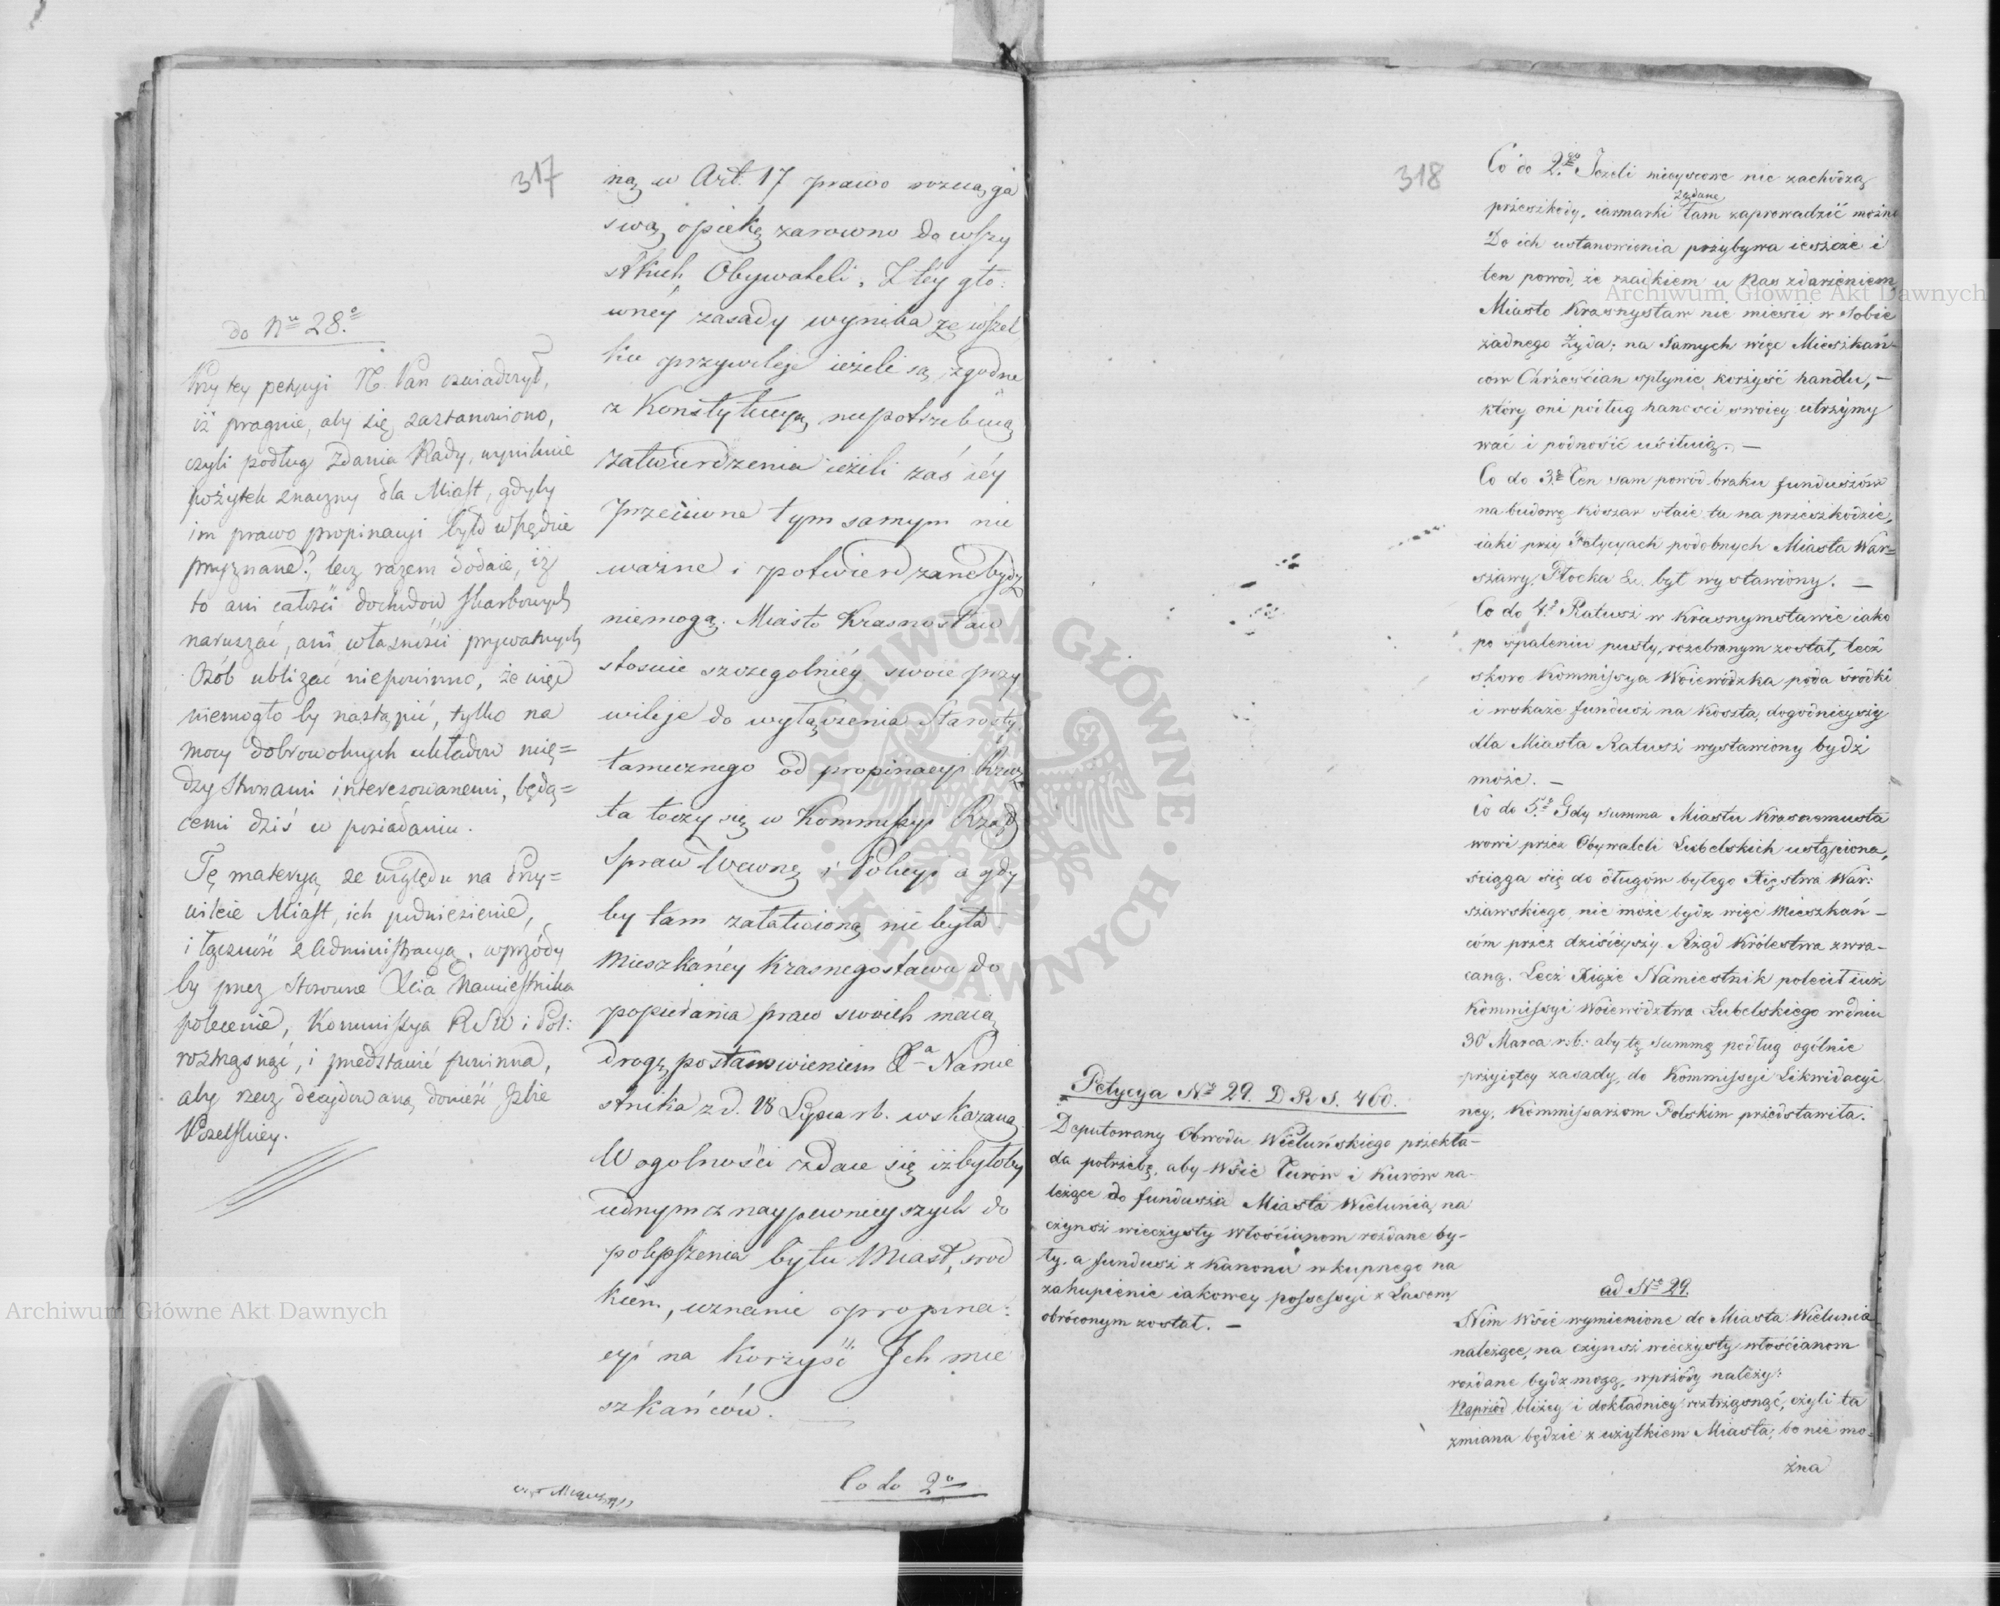 317
do Nru 28.o
Przy tey petycyi N. Pan oświadczył,
iż pragnie, aby się zastanowiono,
czyli podług zdania Rady, wyniknie
pożytek znaczny dla Miast, gdyby
im prawo propinacyi było wszędzie
przyznane?, lecz razem dodaie, iż
to ani całości dochodów skarbowych
naruszać, ani własności prywatnych
Osób ubliżać niepowinno, że więc
niemogło by nastąpić, tylko na
mocy dobrowolnych układów mię=
dzy stronami interesowanemi, będą=
cemi dziś w posiadaniu.
Tę materyą ze względu na Przy=
wileie Miast, ich podniesienie,
i łączność z Administracyą, wprzódy
by przez stosowne Xcia Namiestnika
polecenie, Kommissya R.S.W. i Pol:
roztrząsnąć, i przedstawić powinna,
aby rzecz decydowaną donieść Izbie
Poselskiey.
ną w Art. 17 prawo rozciąga
swą opiekę zarowno do wszy
stkich Obywateli. Z tey gło:
wney zasady wynika że wszel
kie przywileje ieżeli są zgodne
z Konstytucyą niepotrzebuią
zatwierdzenia ieżeli zaś iéy
przeciwne tym samym nie
ważne i potwierdzane bydź
niemogą. Miasto Krasnostaw
stosuie szczegolniéy swoie przy
wileje do wyłączenia Starosty
tamecznego od propinacyi Rzecz
ta toczy się w Kommissyi Rząd
Spraw Wewnę i Policyi a gdy
by tam załatwioną nie była
Mieszkańcy Krasnegostawu do
popierania praw swoich maią
drogę postanowieniem Xa Namie
stnika z d. 18 Lipca rb. wskazaną
W ogolności zdaie się iż byłoby
iednym z naypewnieyszych do
polepszenia bytu Miast, środ
kiem, uznanie propina:
cyi na korzyść Ich mie
szkańców.
Co do 2o
318
Co do 2go Jeżeli mieyscowe nie zachodzą
przeszkody, iarmarki żądane tam zaprowadzić można
Do ich ustanowienia przybywa ieszcze i
ten powod, że rzadkiem u Nas zdarzeniem,
Miasto Krasnystaw nie mieści w Sobie
żadnego Żyda; na samych więc Mieszkań-
ców Chrześcian spłynie korzyść handlu,—
który oni podług możności swoiey utrzymy
wać i podnosić usiłuią.—
Co do 3o Ten sam powód braku funduszów
na budowę Koszar staie tu na przeszkodzie,
iaki przy Petycyach podobnych Miasta War=
szawy, Płocka &c. był wystawiony.—
Co do 4o Ratusz w Krasnymstawie iako
po spaleniu pusty, rozebranym został, lecz
skoro Kommissya Woiewódzka poda środki
i wskaże fundusz na koszta, dogodnieyszy
dla Miasta Ratusz wystawiony bydź
może.—
Co do 5o Gdy summa Miastu Krasnemusta
wowi przez Obywateli Lubelskich ustąpiona,
ściąga się do długów byłego Xięstwa War:
szawskiego, nie może bydź więc Mieszkań—
cóm przez dzisieyszy Rząd Królestwa zwra—
caną. Lecz Xiąże Namiestnik polecił iuż
Kommissyi Woiewództwa Lubelskiego w dniu
30 Marca r.b. aby tę summę podług ogólnie
przyiętey zasady, do Kommissyi Likwidacyi
ney, Kommissarzom Polskim przedstawiła.
Petycya No 29. D.R.S. 460.
Deputowany Obwodu Wieluńskiego przekła—
da potrzebę, aby Wsie Turów i Kurów na—
leżące do funduszu Miasta Wielunia, na
czynsz wieczysty włościanom rozdane by—
ły, a fundusz z Kanonu wkupnego na
zakupienie iakowey possessyi z Lasem
obróconym został.—
ad No 29.
Nim Wsie wymienione do Miasta Wielunia
należące, na czynsz wieczysty włościanom
rozdane bydź mogą, wprzódy należy:
Naprzód bliżey i dokładniey roztrząsnąć, czyli ta
zmiana będzie z użytkiem Miasta, bo nie mo—
żna
Archiwum Główne Akt Dawnych
Archiwum Główne Akt Dawnych
ARCHIWUM GŁÓWNE AKT DAWNYCH